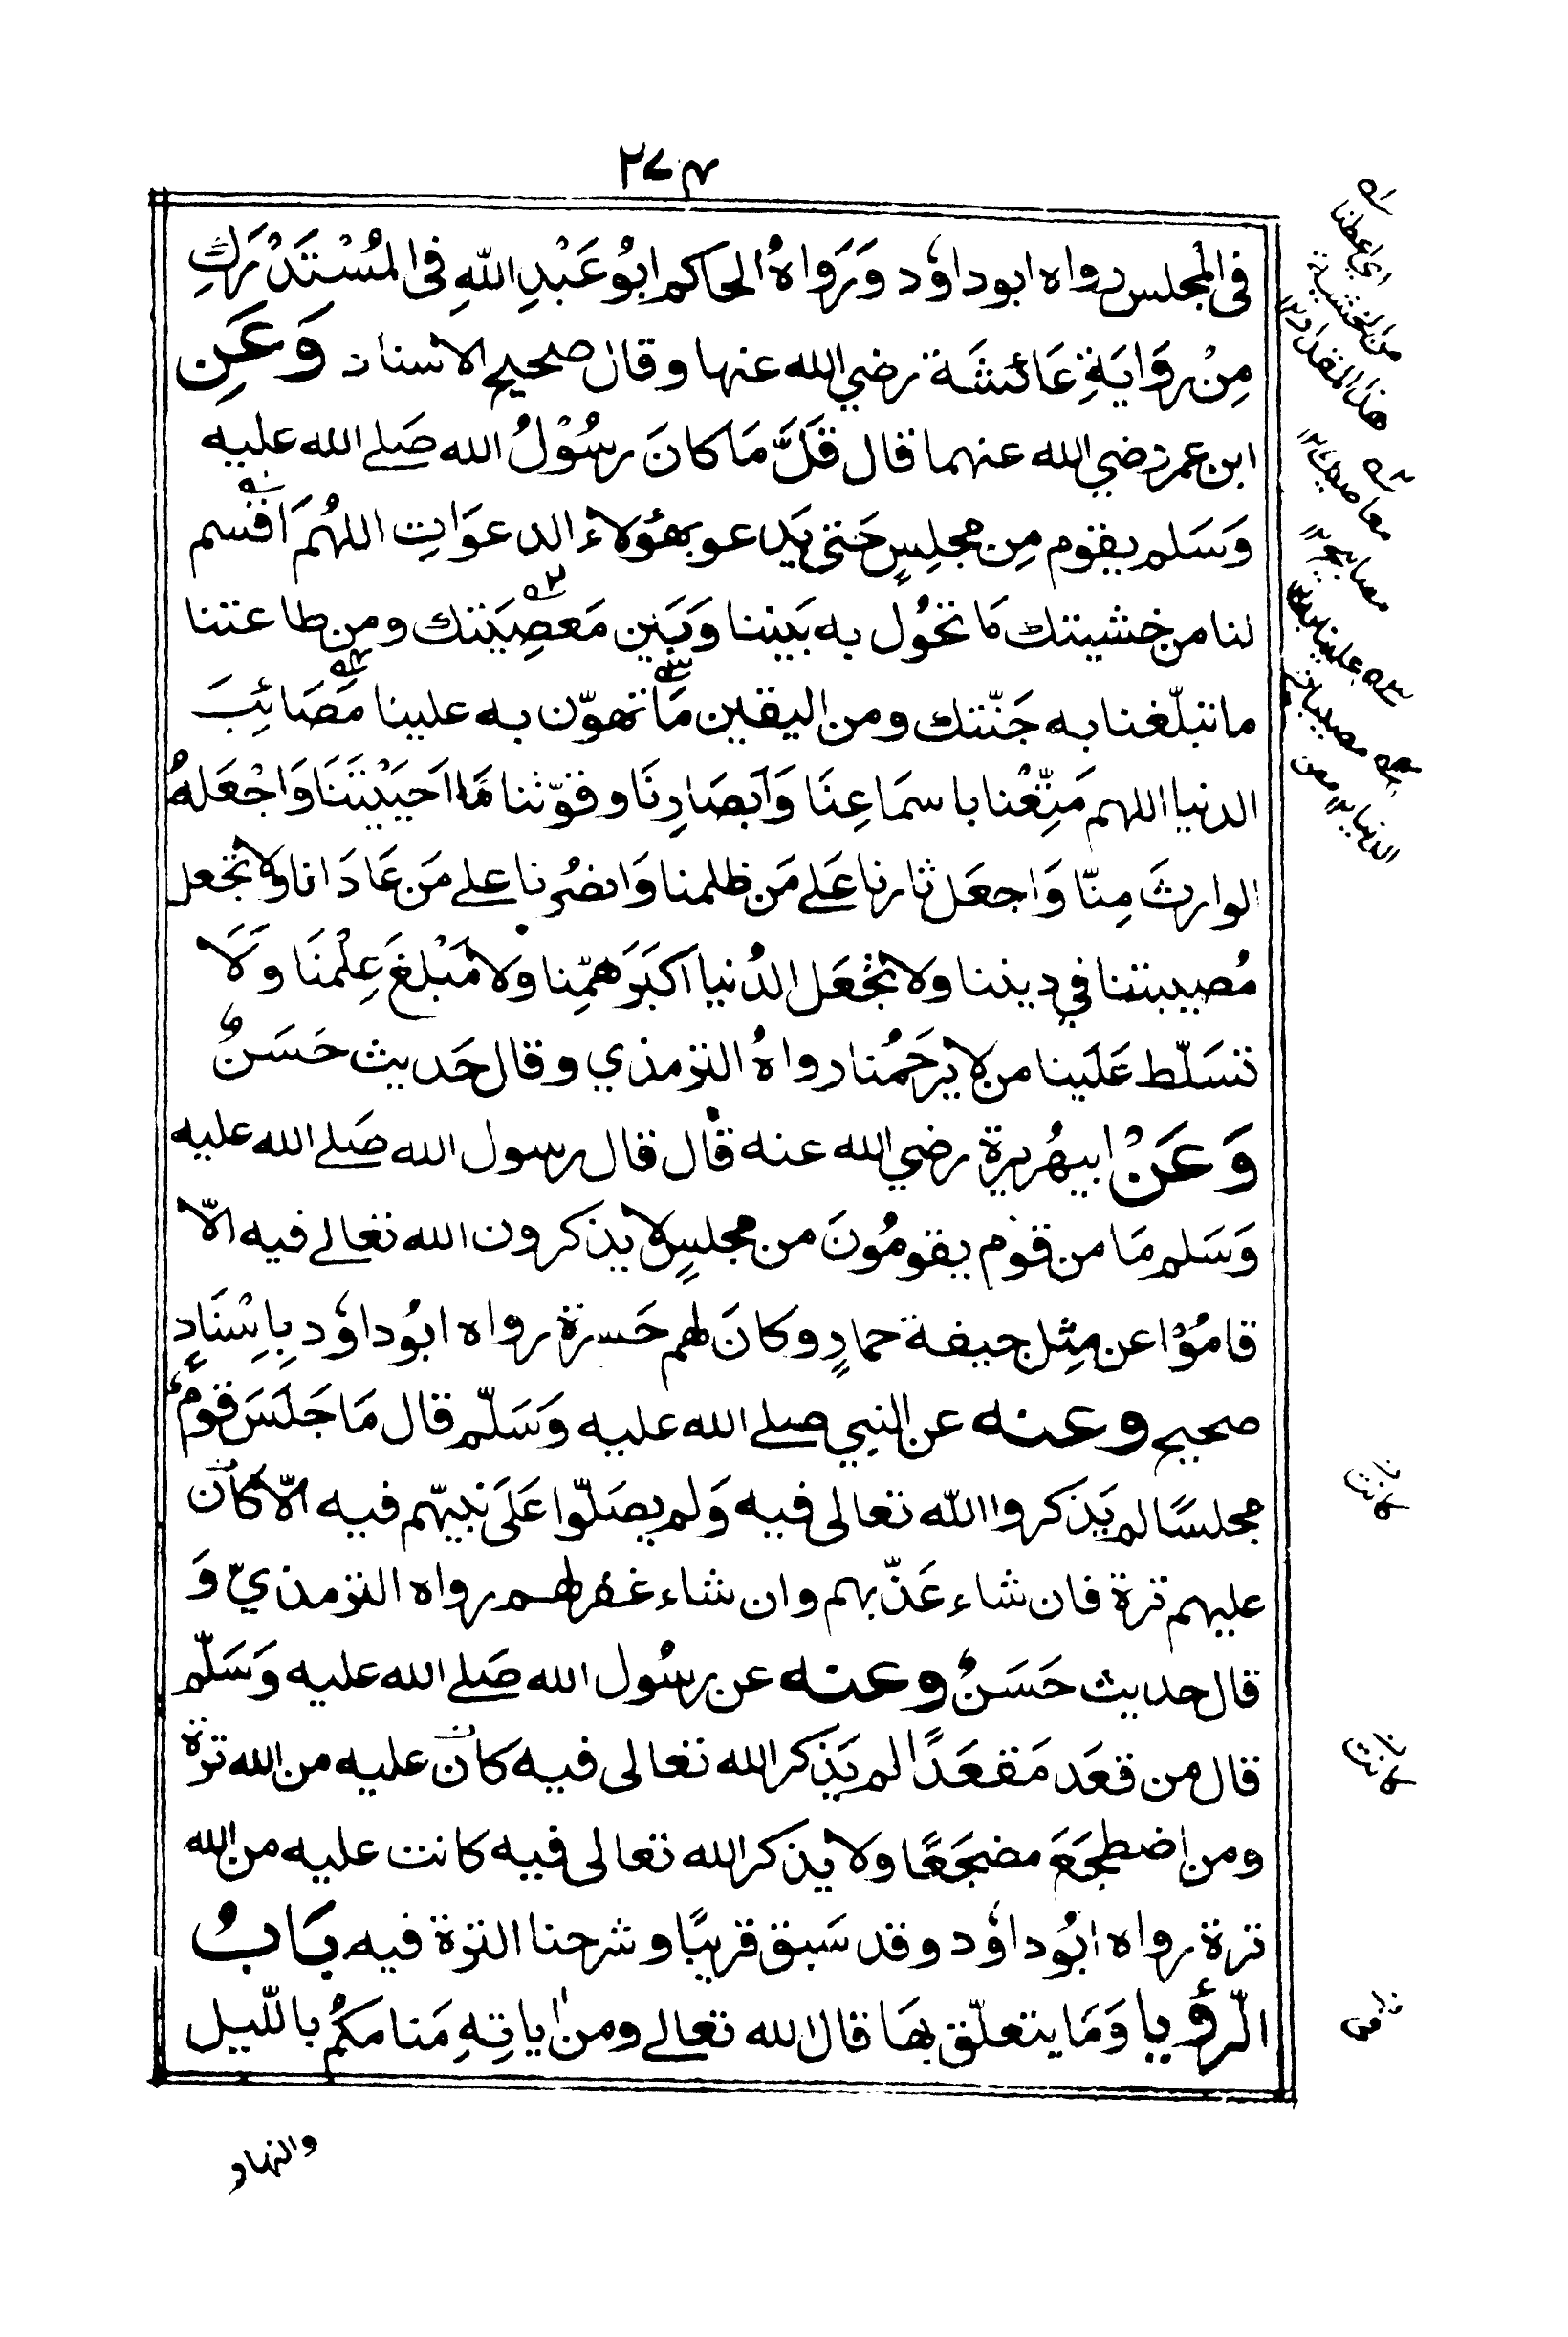 ٢٧٤
في المجلس رواه ابوداوٗد وَرَوَاهُ الحاكم ابُو عَبْدِ اللّٰهِ فى المُسْتَدْرَكِ
مِنْ رِوَايَةِ عَائشَة رضي الله عنها وقال صحيح الاسناد وَعَنِ
ابن عمر رضي الله عنهما قال قَلَّ مَا كانَ رسُوْلُ الله صَلے الله عليه
وَسَلم يقوم مِن مجلِسٍ حَتى يَدعو بهؤلاء الدعوَاتِ اللهُم اَقسم
لنا من خشيتك مَا تحُول به بَيننا وَبَين مَعصِيَتك ومن طاعتنا
ما تبلّغنا به جَنّتك ومن اليقين مَا تهوّن به علينا مَصَائِبَ
الدنيا اللهم مَتِّعْنا باسمَاعِنَا وَاَبصَارِنَا وقوّتنا مَا اَحيَيْتَنَا وَاجْعَلهُ
الوارثَ مِنّا وَاجعَل ثارنا عَلے مَن ظلمنا وَانصُرنا علے مَن عَادَانا ولا تجعل
مُصيبتنا في ديننا ولا تجْعَل الدُنيا اَكبَرَ همِّنا ولا مَبْلغَ عِلْمنَا وَلَا
تسَلّط عَلَينا من لا يرحَمُنا رواهُ الترمذي وقال حَديث حَسَنٌ
وَعَنْ ابيهُريرة رضي الله عنه قال قال رسول الله صَلے الله عليه
وَسَلم مَا من قوم يقومُونَ من مجلسٍ لا يذكرون الله تعالے فيه الّا
قامُوْا عن مِثل جيفة حمارٍ وكانَ لهم حَسرة رواه ابُوداوٗد بِاِسْنَادٍ
صحيح وعنه عن النبي صلے الله عليه وَسَلّم قال مَا جَلَسَ قومٌ
مجلسًا لم يَذكروا اللّٰه تعالى فيه وَلم يصَلّوا عَلَى نبيّهم فيه الّا كَان
عليهم ترة فان شاء عَذّبهم وان شاء غفر لهم رواه الترمذيّ وَ
قال حديث حَسَنٌ وعنه عن رسُول الله صَلے الله عليه وَسَلّم
قال من قعَد مَقعَدًا لم يَذكر الله تعالى فيه كان عليه من الله ترة
ومن اضطجَعَ مضجَعًا ولا يذكر الله تعالى فيه كانت عليه من الله
ترة رواه ابُوداوٗد وقد سَبق قريبًا وشرحنا الترة فيه بَابُ
الرؤيا وَمَا يتعلّق بهَا قال الله تعالے ومن اٰياتِهِ مَنامكُم بالّليل
اي اعطنا
من الخشية
هذا المقدار ١٢
معاصيك
مصابيح ١٢
علينا
مصيبات
الدنيا ١٢
كانت
كانت
والنهار